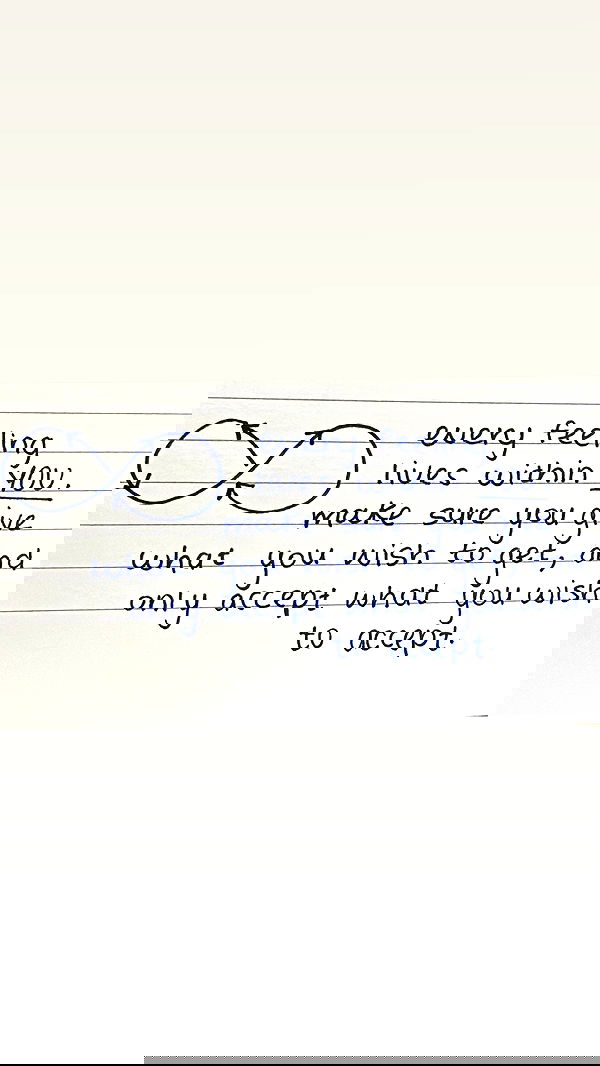 every feeling
lives within you.
make sure you give
what you wish to get, and
only accept what you wish
to accept.